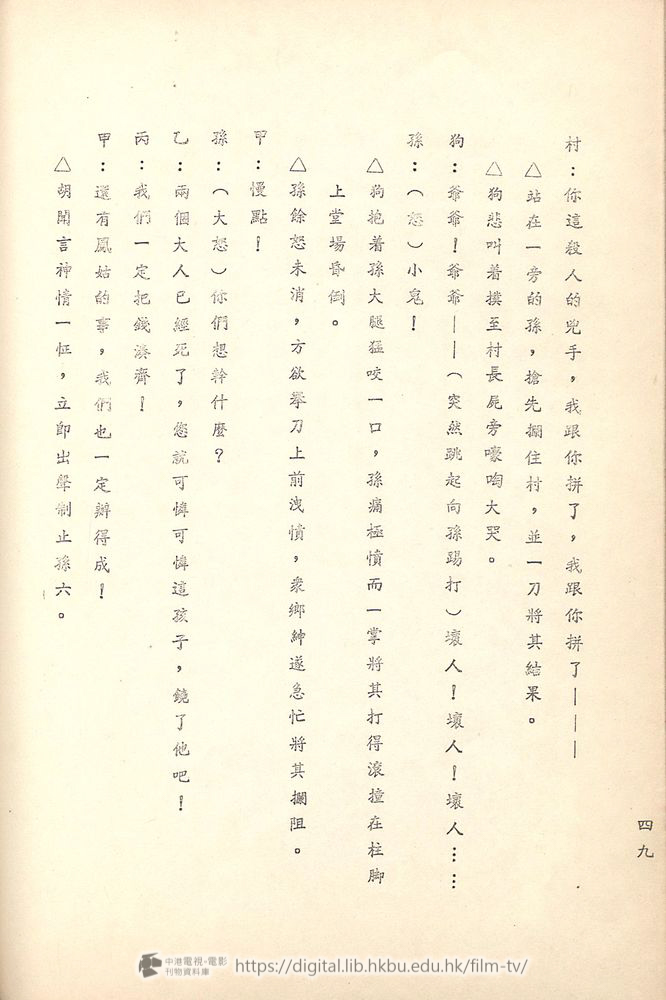 村：你這殺人的兇手，我跟你拼了，我跟你拼了———
△站在一旁的孫，搶先攔住村，並一刀將其結果。
△狗悲叫着撲至村長屍旁嚎啕大哭。
狗：爺爺！爺爺——（突然跳起向孫踢打）壞人！壞人！壞人……
孫：（怒）小鬼！
△狗抱着孫大腿猛咬一口，孫痛極憤而一掌將其打得滾撞在柱脚
上堂場昏倒。
△孫餘怒未消，方欲舉刀上前洩憤，衆鄉紳遂急忙將其攔阻。
甲：慢點！
孫：（大怒）你們想幹什麼？
乙：兩個大人已經死了，您就可憐可憐這孩子，饒了他吧！
丙：我們一定把錢湊齊！
甲：還有鳳姑的事，我們也一定辦得成！
△胡聞言神情一怔，立即出聲制止孫六。
四九
中港電視·電影
刊物資料庫
https://digital.lib.hkbu.edu.hk/film-tv/